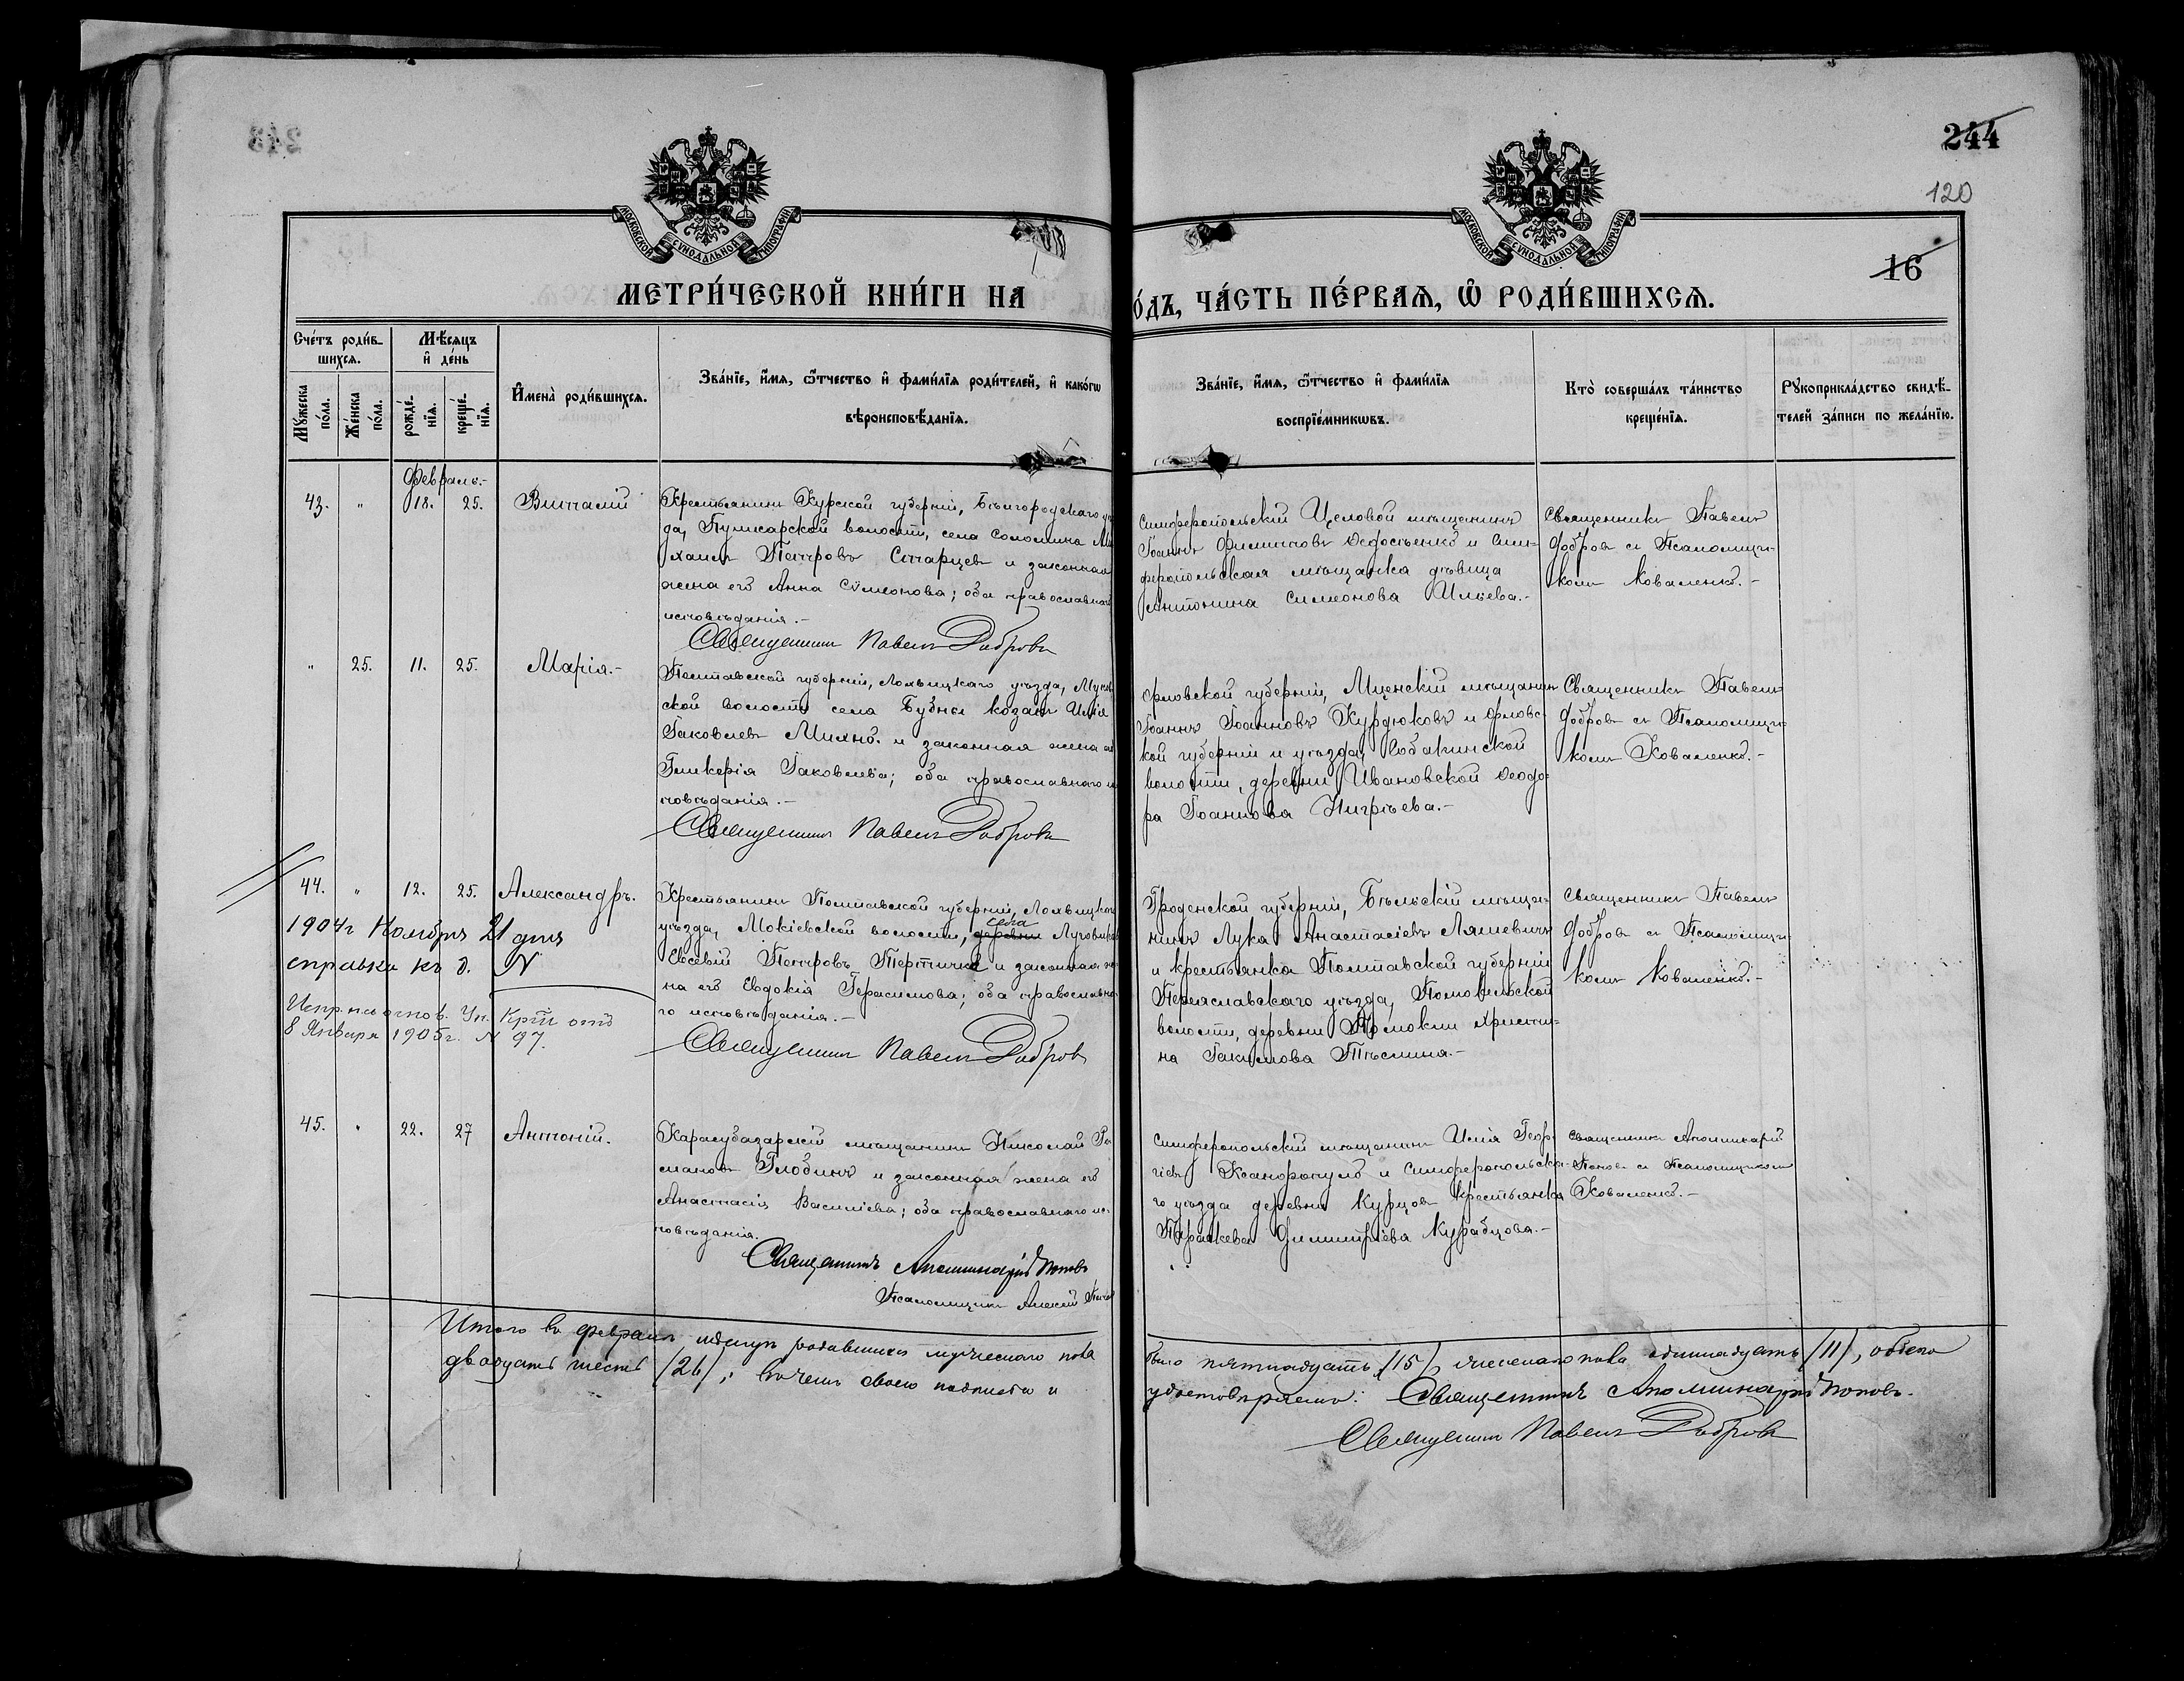 244
120
16
МОСКОВСКОЙ СѴНОДАЛЬНОЙ ТИПОГРАФІИ
МОСКОВСКОЙ СѴНОДАЛЬНОЙ ТИПОГРАФІИ
МЕТРИ́ЧЕСКОЙ КНИ́ГИ НА
О́ДЪ, ЧА́СТЬ ПЕ́РВАЯ, Ѿ РОДИ́ВШИХСЯ.
Сче́тъ роди́в-
шихся.
Мѣ́сяцъ
и҆ де́нь
Му́жеска по́ла.
Же́нска по́ла.
рожде́-
нїя.
креще́-
нїя.
И҆мена̀ роди́вшихся.
Зва́нїе, и҆́мя, ѿтчество и҆ фами́лїя роди́телей, и҆ како́гѡ
вѣроисповѣ́данїя.
Зва́нїе, и҆́мя, ѿтчество и҆ фами́лїя
воспрїе́мникѡвъ.
Кто̀ соверша́лъ та́инство
креще́нїя.
Рꙋкоприкла́дство свидѣ́-
телей за́писи по жела́нїю.
Февраль.-
43. " 18. 25. Виталій
Крестьянинъ Курской губерніи, Бѣлгородскаго уѣ
да, Пушкарской волости, села Соломина Ми
хаилъ Петровъ Старцевъ и законная
жена его Анна Сѵмеонова; оба православнаго
исповѣданія.-
Священникъ Павелъ Добровъ
Симферопольскій Цеховой мѣщанинъ
Іоаннъ Филипповъ Ѳедосѣенко и Сим-
феропольская мѣщанка дѣвица
Антонина Симеонова Ильева.-
Священникъ Павелъ
Добровъ съ Псаломщи-
комъ Коваленко.-
" 25. 11. 25. Марія.-
Полтавской губерніи, Лохвицкаго уѣзда,
ской волости села Бубны козакъ Илія
Іаковлевъ Михно. и законная жена его
Гликерія Іаковлева; оба православнаго и
повѣданія.-
Священникъ Павелъ Добровъ
Орловской губерніи, Мценскій мѣщанинъ
Іоаннъ Іоанновъ Курдюковъ и Орловс-
кой губерніи и уѣзда, Собакинской
волости, деревни Ивановской Ѳеодо-
ра Іоаннова Нигрѣева.-
Священникъ Павелъ
Добровъ съ Псаломщи-
комъ Коваленко.-
44. " 12. 25. Александръ.
1904г Ноября 21 дня
справка къ д. N
8 Января 1905г. N 97.
Крестьянинъ Полтавской губерніи, Лохвицкаго
села
уѣзда, Мокіевской волости, деревни Луговиковъ
Евсевій Петровъ Тертичка и законная же
на его Евдокія Герасимова; оба православна-
го исповѣданія.-
Священникъ Павелъ Добровъ
Гродненской губерніи, Бѣльскій мѣща-
нинъ Лука Анастасіевъ Ляшевичъ
и крестьянка Полтавской губерніи
Переяславскаго уѣзда,
волости, деревни Ярмолки Христи-
на Іакимова Тѣслина.-
Священникъ Павелъ
Добровъ съ Псаломщи-
комъ Коваленко.-
45. " 22. 27 Антоній.
Карасубазарскій мѣщанинъ Николай Ро
мановъ Глобинъ и законная жена его
Анастасія Василіева; оба православнаго ис-
повѣданія.
Священникъ Аполлинарій Поповъ
Псаломщикъ Алексій
Симферопольскій мѣщанинъ Илія Геор-
гіевъ Ксанопуло и Симферопольска-
го уѣзда деревни Курцовъ крестьянка
Параскева Димитріева Курабцова.-
Священникъ Аполлинарій
Поповъ съ Псаломщикомъ
Коваленко.-
Итого въ февралѣ мѣсяцѣ родившихся мужескаго пола
было пятнадцать /15/, женскаго пола одиннадцать /11/, обоего
двадцать шесть /26/; въ чемъ своею подписью и
удостовѣряемъ: Священникъ Аполлинарій Поповъ.
Священникъ Павелъ Добровъ